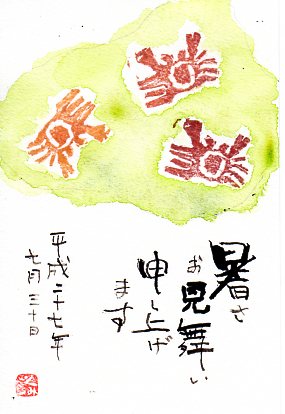 暑さ
お見舞い
申し上げ
ます
平成二十七年
七月三十日